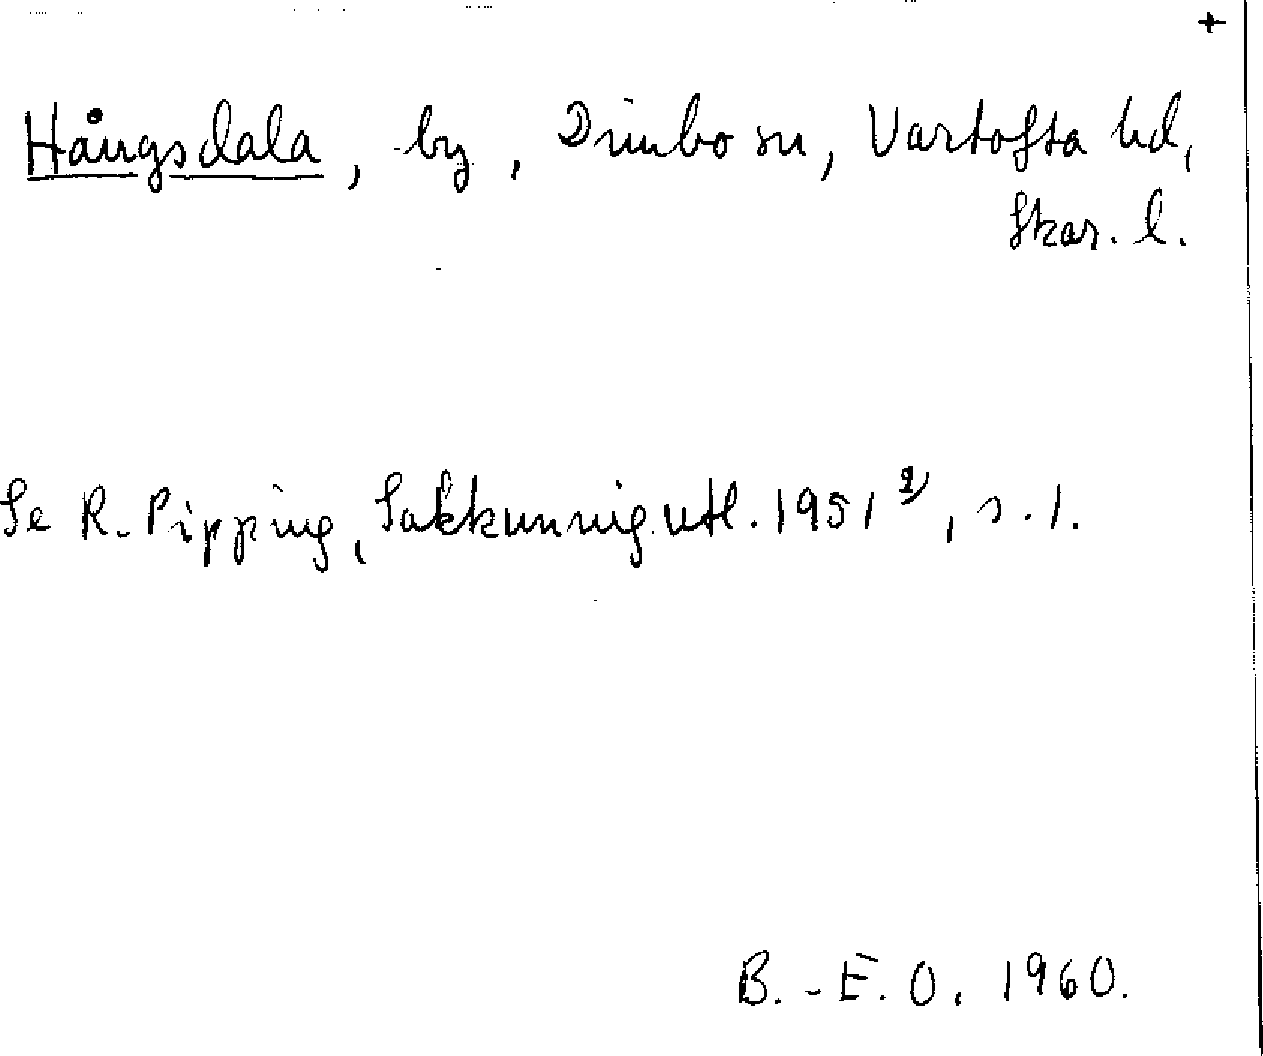 +
Hångsdala, by, Dimbo sn, Vartofta hd,
Skar. l.
Se R. Pipping, Sakkunnigutl. 1951 2), s. 1.
B.-E. O. 1960.